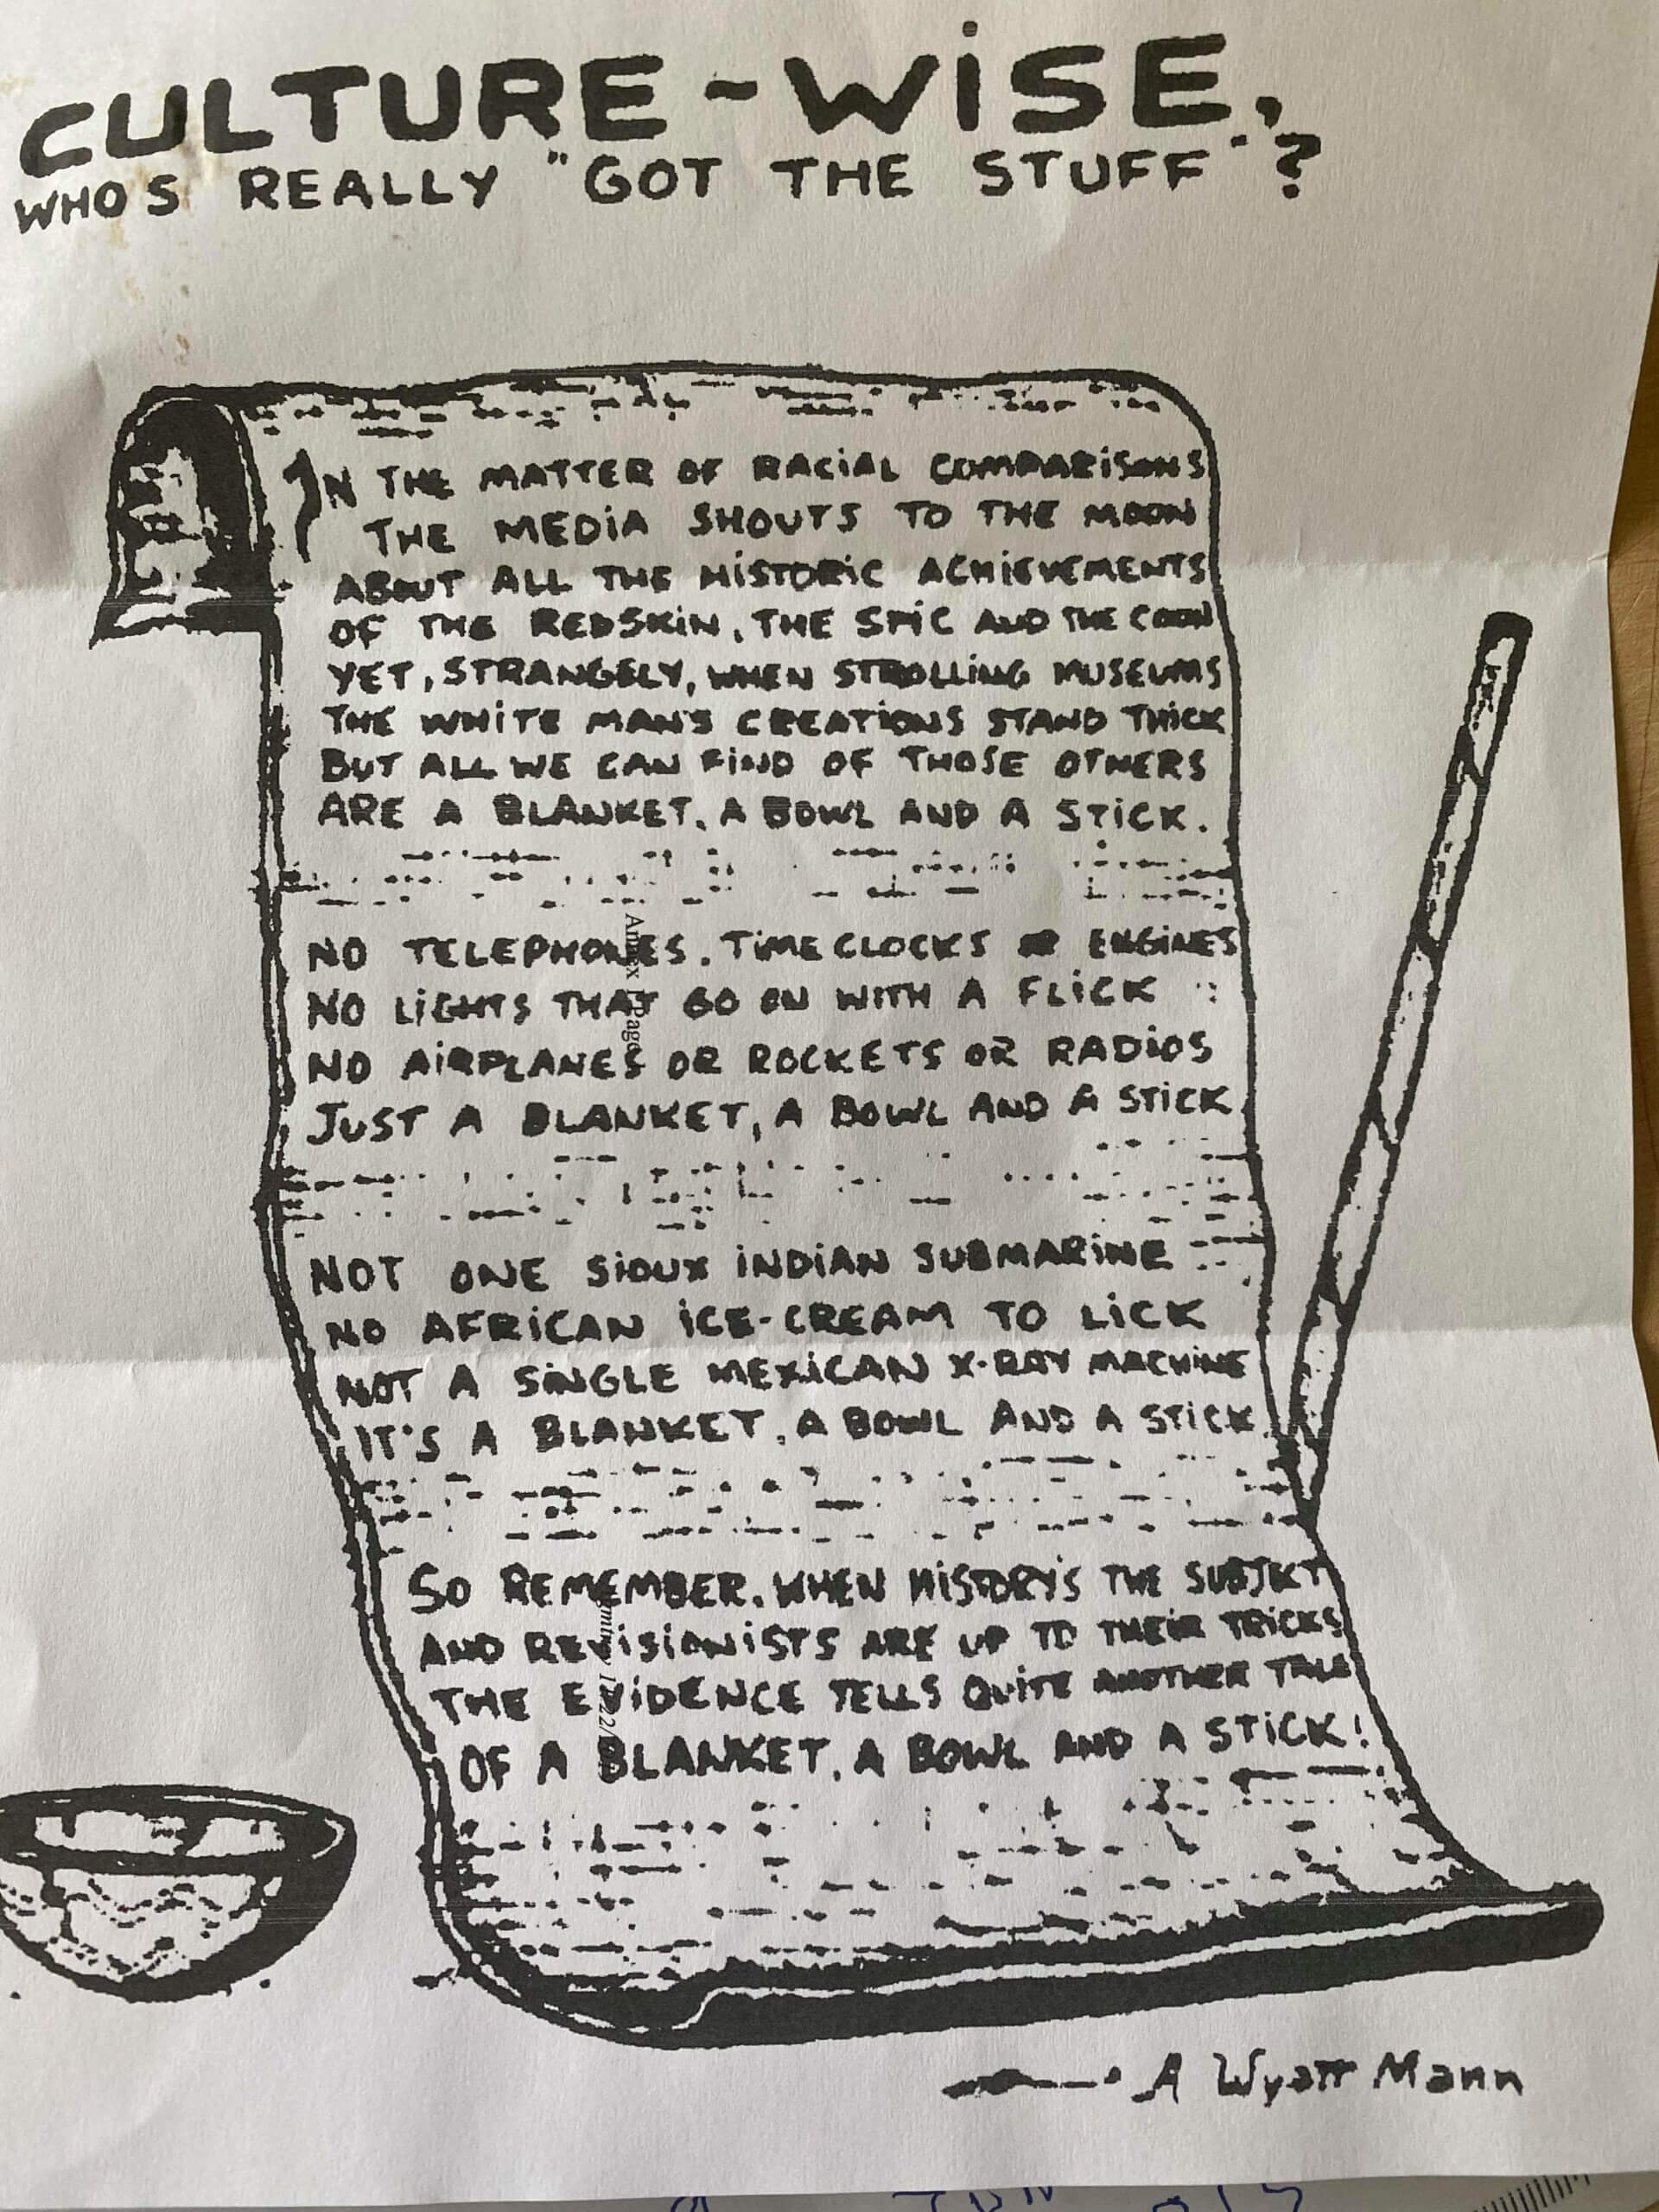 CULTURE-WISE,
WHO'S REALLY "GOT THE STUFF"?
IN THE MATTER OF RACIAL COMPARISONS
THE MEDIA SHOUTS TO THE MOON
ABOUT ALL THE HISTORIC ACHIEVEMENTS
OF THE REDSKIN, THE SPIC AND THE COON
YET, STRANGELY, WHEN STROLLING MUSEUMS
THE WHITE MAN'S CREATIONS STAND THICK
BUT ALL WE CAN FIND OF THOSE OTHERS
ARE A BLANKET, A BOWL AND A STICK.
NO TELEPHONES, TIMECLOCKS OR ENGINES
NO LIGHTS THAT GO ON WITH A FLICK
NO AIRPLANES OR ROCKETS OR RADIOS
JUST A BLANKET, A BOWL AND A STICK
NOT ONE SIOUX INDIAN SUBMARINE
NO AFRICAN ICE-CREAM TO LICK
NOT A SINGLE MEXICAN X-RAY MACHINE
IT'S A BLANKET, A BOWL AND A STICK.
SO REMEMBER, WHEN HISTORY'S THE SUBJECT
AND REVISIONISTS ARE UP TO THEIR TRICKS
THE EVIDENCE TELLS QUITE ANOTHER TALE
OF A BLANKET, A BOWL AND A STICK!
A Wyatt Mann